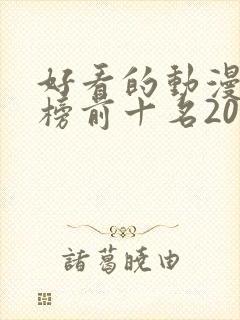 好看的動漫
榜前十名20
諸葛曉由